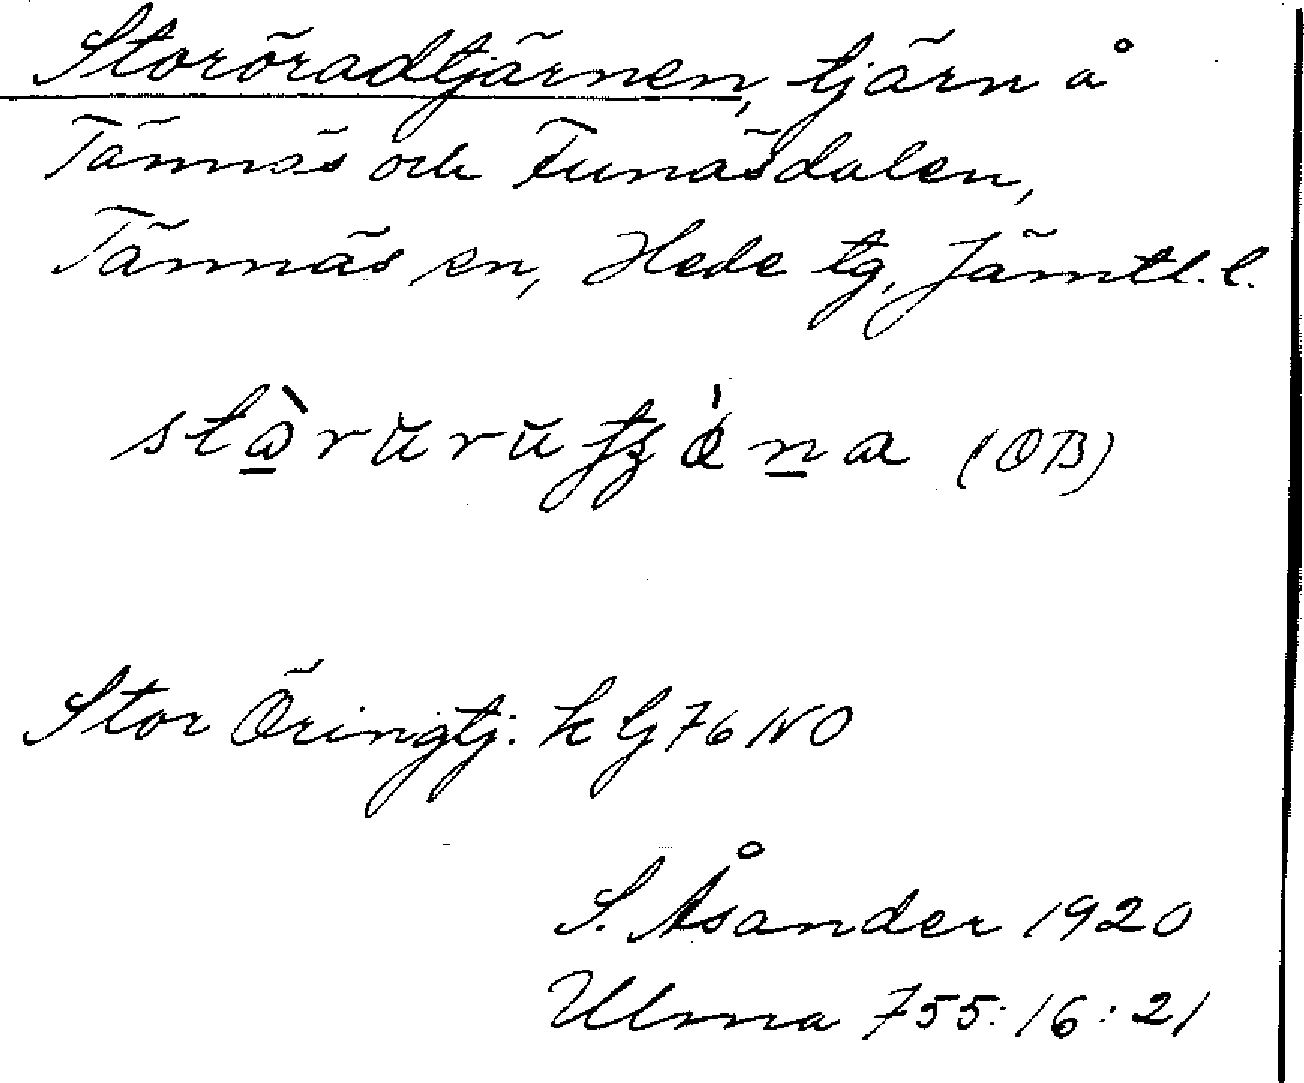 Storöradtjärnen, tjärn å
Tännäs och Funäsdalen,
Tännäs sn, Hede tg, Jämtl. l.
(OB)
Stor Öringtj: k G 76 NO
S. Åsander 1920
Ulma 755:16:21